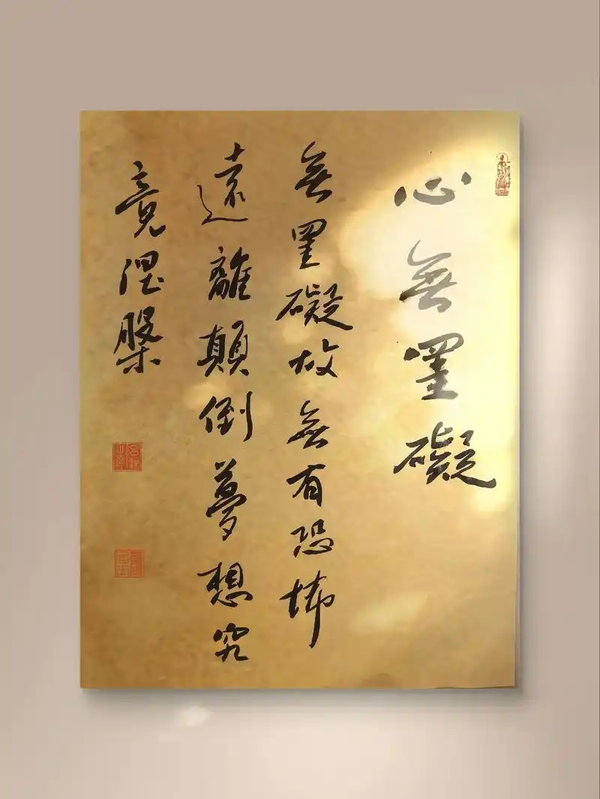 心無罣礙
無罣礙故無有恐怖
遠離顛倒夢想究
竟涅槃